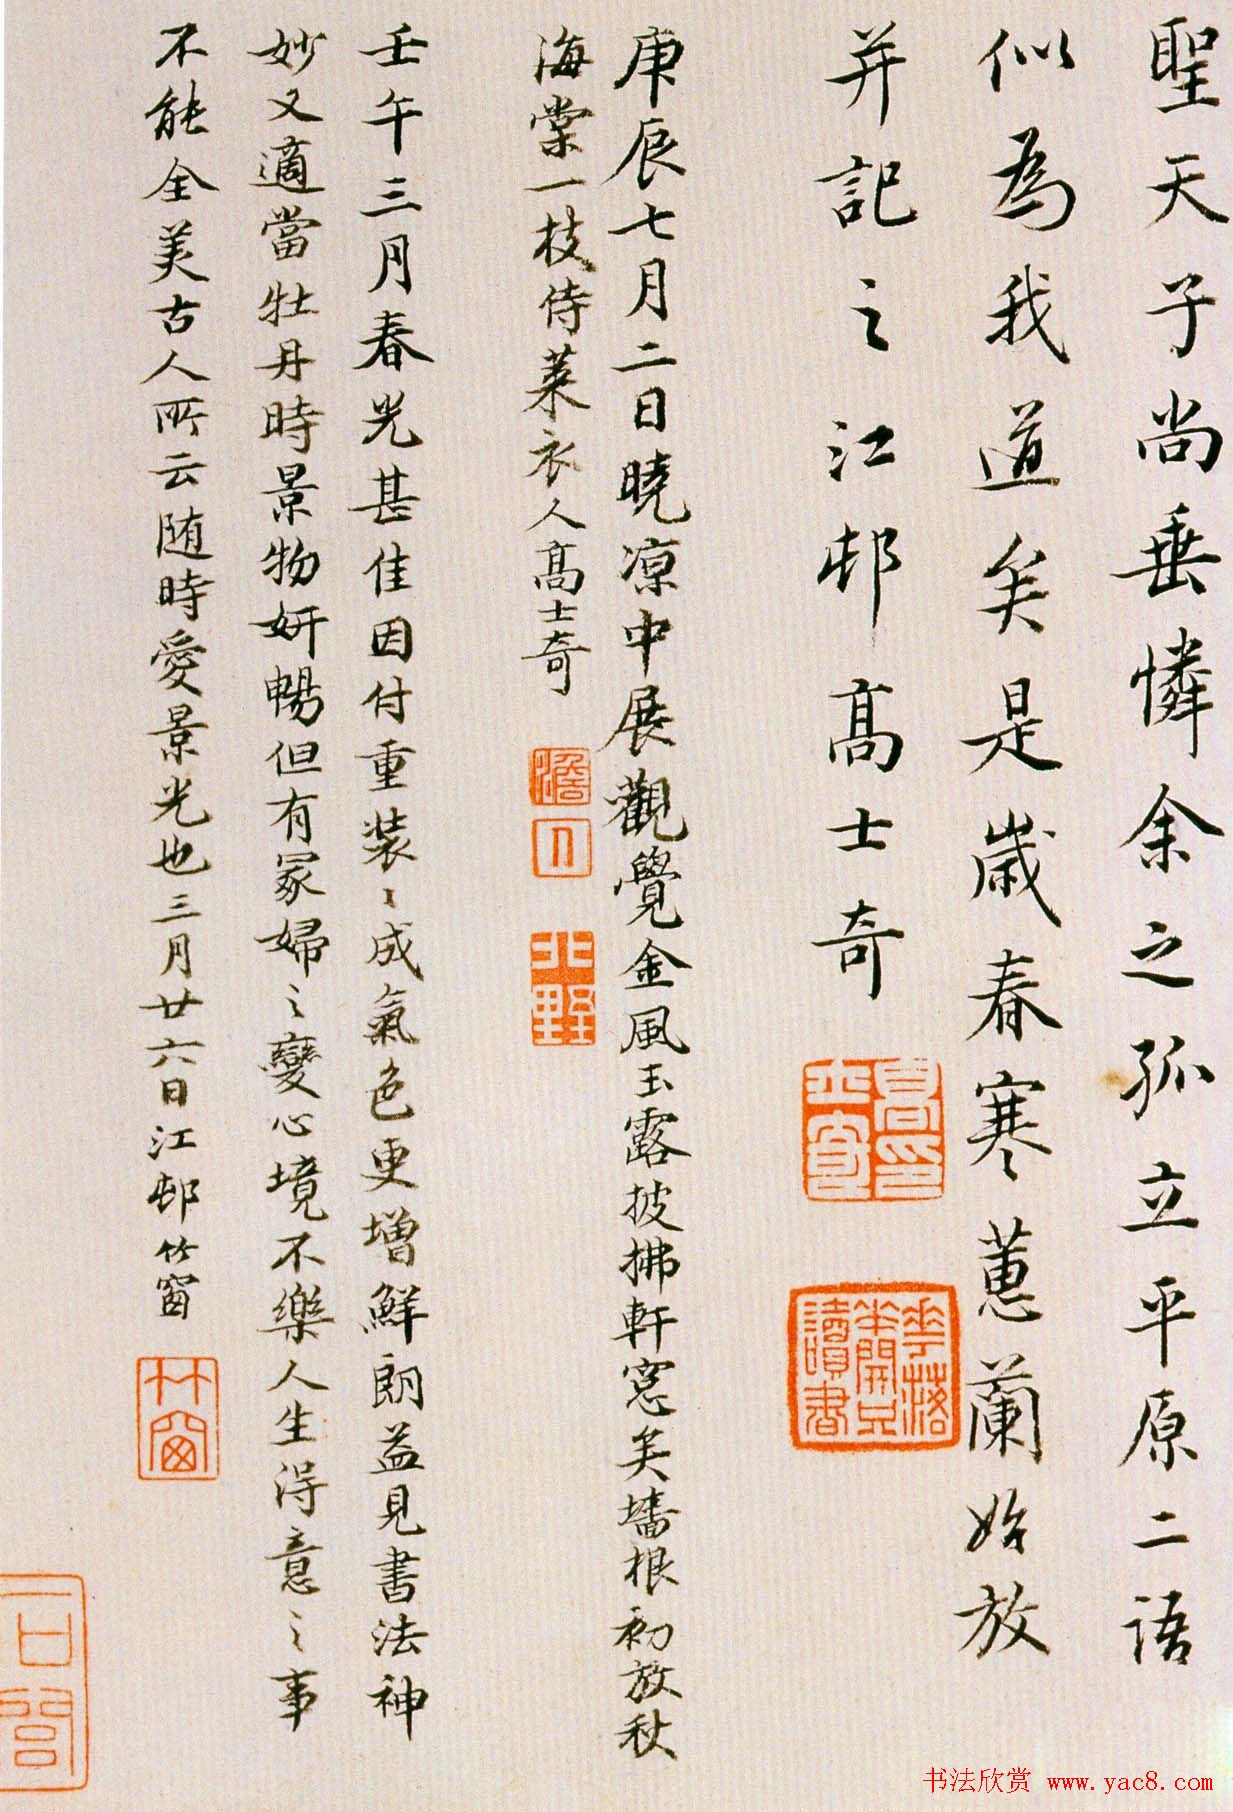 聖天子尚垂憐余之孤立平原二語
似為我道矣是歲春寒蕙蘭始放
并記之江邨高士奇
庚辰七月二日曉涼中展觀覺金風玉露披拂軒窓矣墻根初放秋
海棠一枝侍萊衣人高士奇
壬午三月春光甚佳因付重装〻成氣色更增鮮朗益見書法神
妙又適當牡丹時景物妍暢但有冢婦之變心境不樂人生得意之事
不能全美古人所云随時愛景光也三月廿六日江邨竹窗
澹人
北野
高士奇印
華落半開只讀書
竹窗
书法欣赏 www.yac8.com